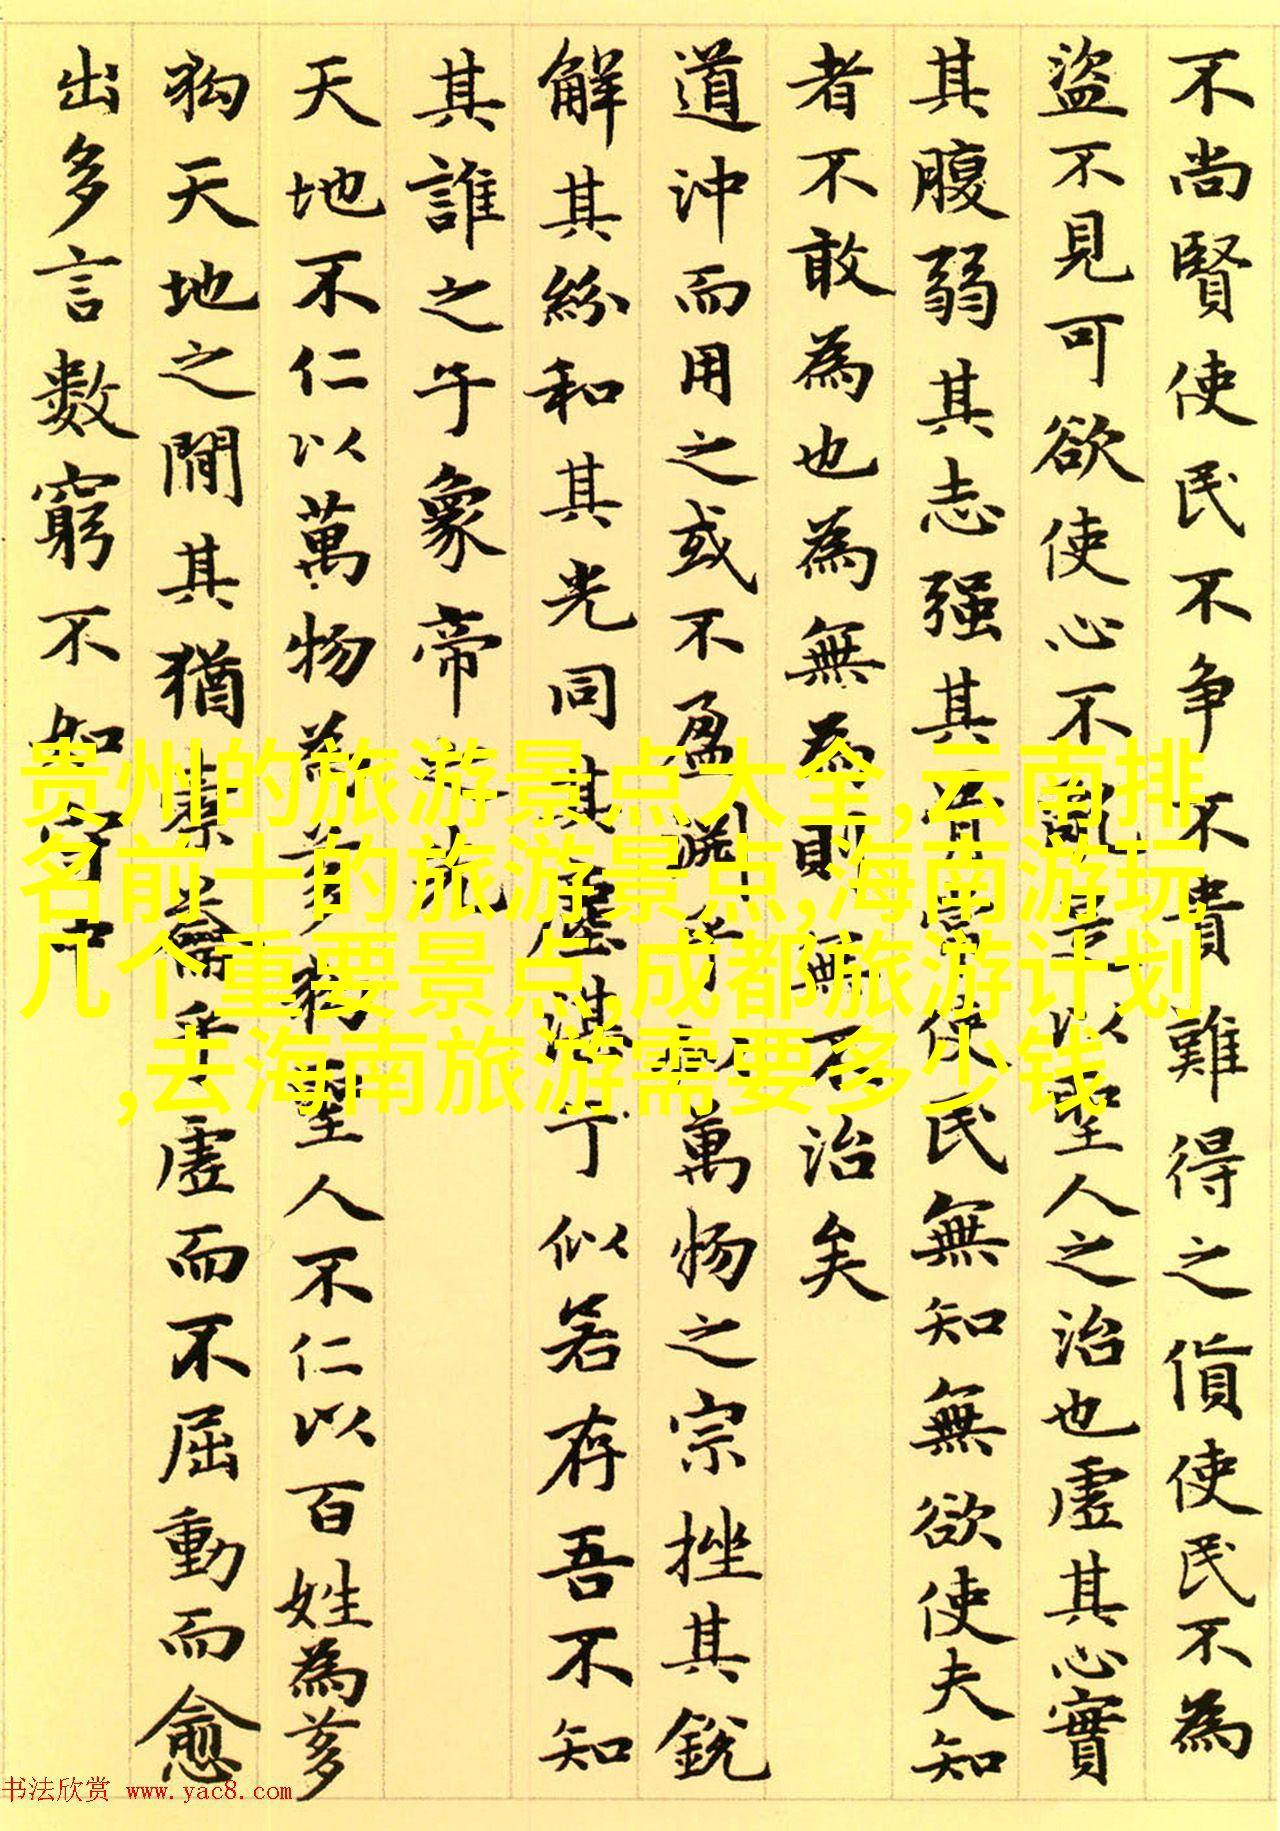 不尚賢使民不争不貴難得之貨使民不為
盜不見可欲使心不亂是以聖人之治也虛其心實
其腹弱其志强其骨常使民無知無欲使夫知
者不敢為也為無為則無不治矣
道沖而用之或不盈淵乎似萬物之宗挫其銳
解其紛和其光同其塵湛兮似若存吾不知
其誰之子象帝之先
天地不仁以萬物為芻狗聖人不仁以百姓為芻
狗天地之間其猶橐籥乎虛而不屈動而愈
出多言數窮不知守中
贵州的旅游景点大全,云南排
名前十的旅游景点,海南游玩
几个重要景点,成都旅游计划
,去海南旅游需要多少钱
书法欣赏 www.yac8.com